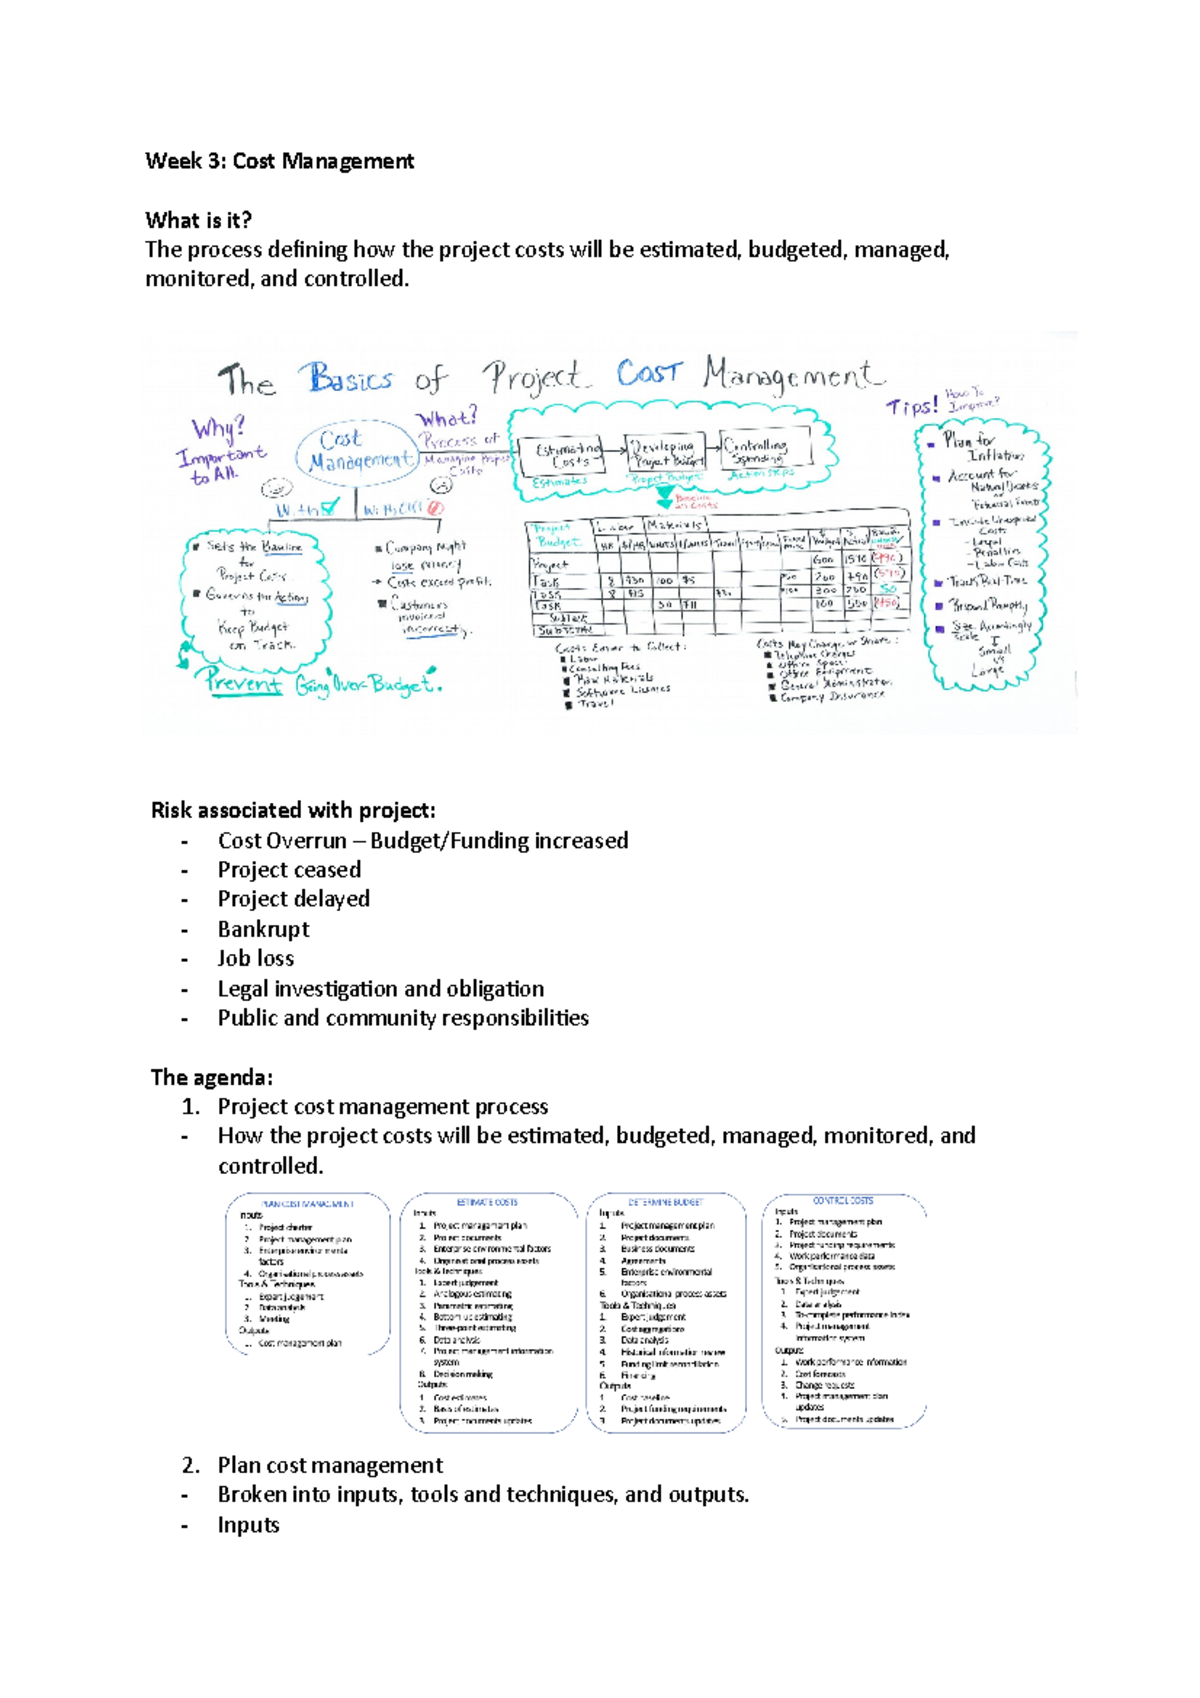 Week 3: Cost Management
What is it?
The process defining how the project costs will be estimated, budgeted, managed,
monitored, and controlled.
The Basics of Project Cost Management
Why?
Important
to All.
Cost
Management
What?
Process of
Managing Project
Costs
With
Without
Estimating
Costs
Estimates
Developing
Project Budget
Project Budget
Controlling
Spending
Action Steps
Tips! How To
Improve?
Sets the Baseline
for
Project Costs.
Governs the Actions
to
Keep Budget
on Track.
Prevent Going "Over-Budget".
Company Might
lose money
Costs exceed profit.
Customers
invoiced
incorrectly.
Project
Budget
Labor
Materials
Project
Task
Task
Task
Subtask
Subtotal
Costs Easier to Collect:
Labor
Consulting Fees
Raw Materials
Software Licenses
Travel
Costs May Change or Share:
Telephone Charges
Office Space
Office Equipment
General Administration
Company Insurance
Plan for
Inflation
Account for
Natural Disasters
or
External Events
Include Unexpected
Costs
- Legal
- Penalties
- Labor Costs
Track Real-Time
Respond Promptly
Size Accordingly
Scale
Small
vs
Large
Risk associated with project:
- Cost Overrun – Budget/Funding increased
- Project ceased
- Project delayed
- Bankrupt
- Job loss
- Legal investigation and obligation
- Public and community responsibilities
The agenda:
1. Project cost management process
- How the project costs will be estimated, budgeted, managed, monitored, and
controlled.
PLAN COST MANAGMENT
Inputs
1. Project charter
2. Project management plan
3. Enterprise environmental
factors
4. Organisational process assets
Tools & Techniques
1. Expert judgement
2. Data analysis
3. Meeting
Outputs
1. Cost management plan
ESTIMATE COSTS
Inputs
1. Project management plan
2. Project documents
3. Enterprise environmental factors
4. Organisational process assets
Tools & Techniques
1. Expert judgement
2. Analogous estimating
3. Parametric estimating
4. Bottom-up estimating
5. Three-point estimating
6. Data analysis
7. Project management information
system
8. Decision making
Outputs
1. Cost estimates
2. Basis of estimates
3. Project documents updates
DETERMINE BUDGET
Inputs
1. Project management plan
2. Project documents
3. Business documents
4. Agreements
5. Enterprise environmental
factors
6. Organisational process assets
Tools & Techniques
1. Expert judgement
2. Cost aggregations
3. Data analysis
4. Historical information review
5. Funding limit reconciliation
6. Financing
Outputs
1. Cost baseline
2. Project funding requirements
3. Project documents updates
CONTROL COSTS
Inputs
1. Project management plan
2. Project documents
3. Project funding requirements
4. Work performance data
5. Organisational process assets
Tools & Techniques
1. Expert judgement
2. Data analysis
3. To-complete performance index
4. Project management
information system
Outputs
1. Work performance information
2. Cost forecasts
3. Change requests
4. Project management plan
updates
5. Project documents updates
2. Plan cost management
- Broken into inputs, tools and techniques, and outputs.
- Inputs